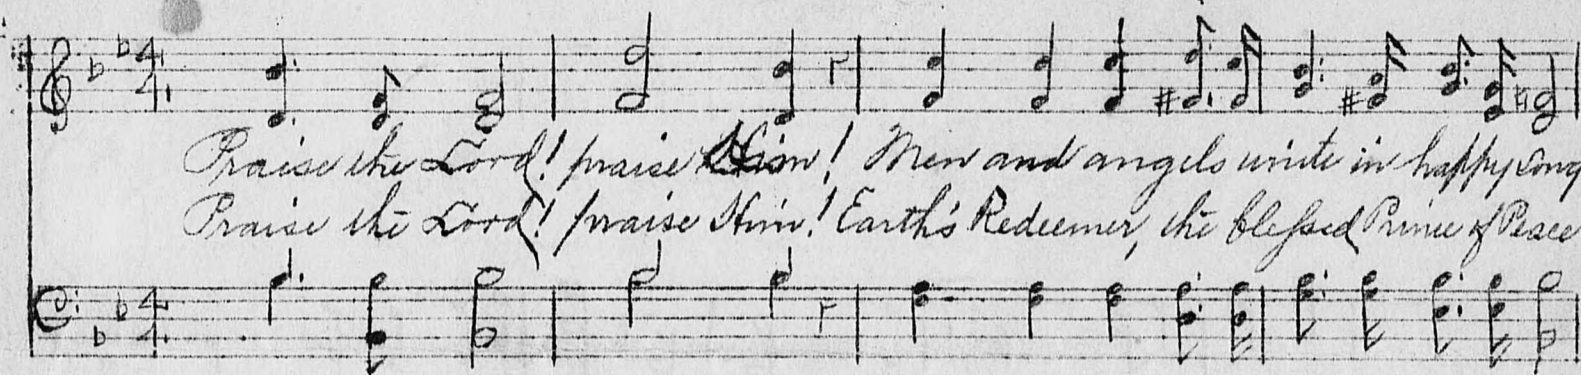 Praise the Lord! praise Him! Men and angels unite in happy song
Praise the Lord! praise Him! Earth's Redeemer, the blessed Prince of Peace